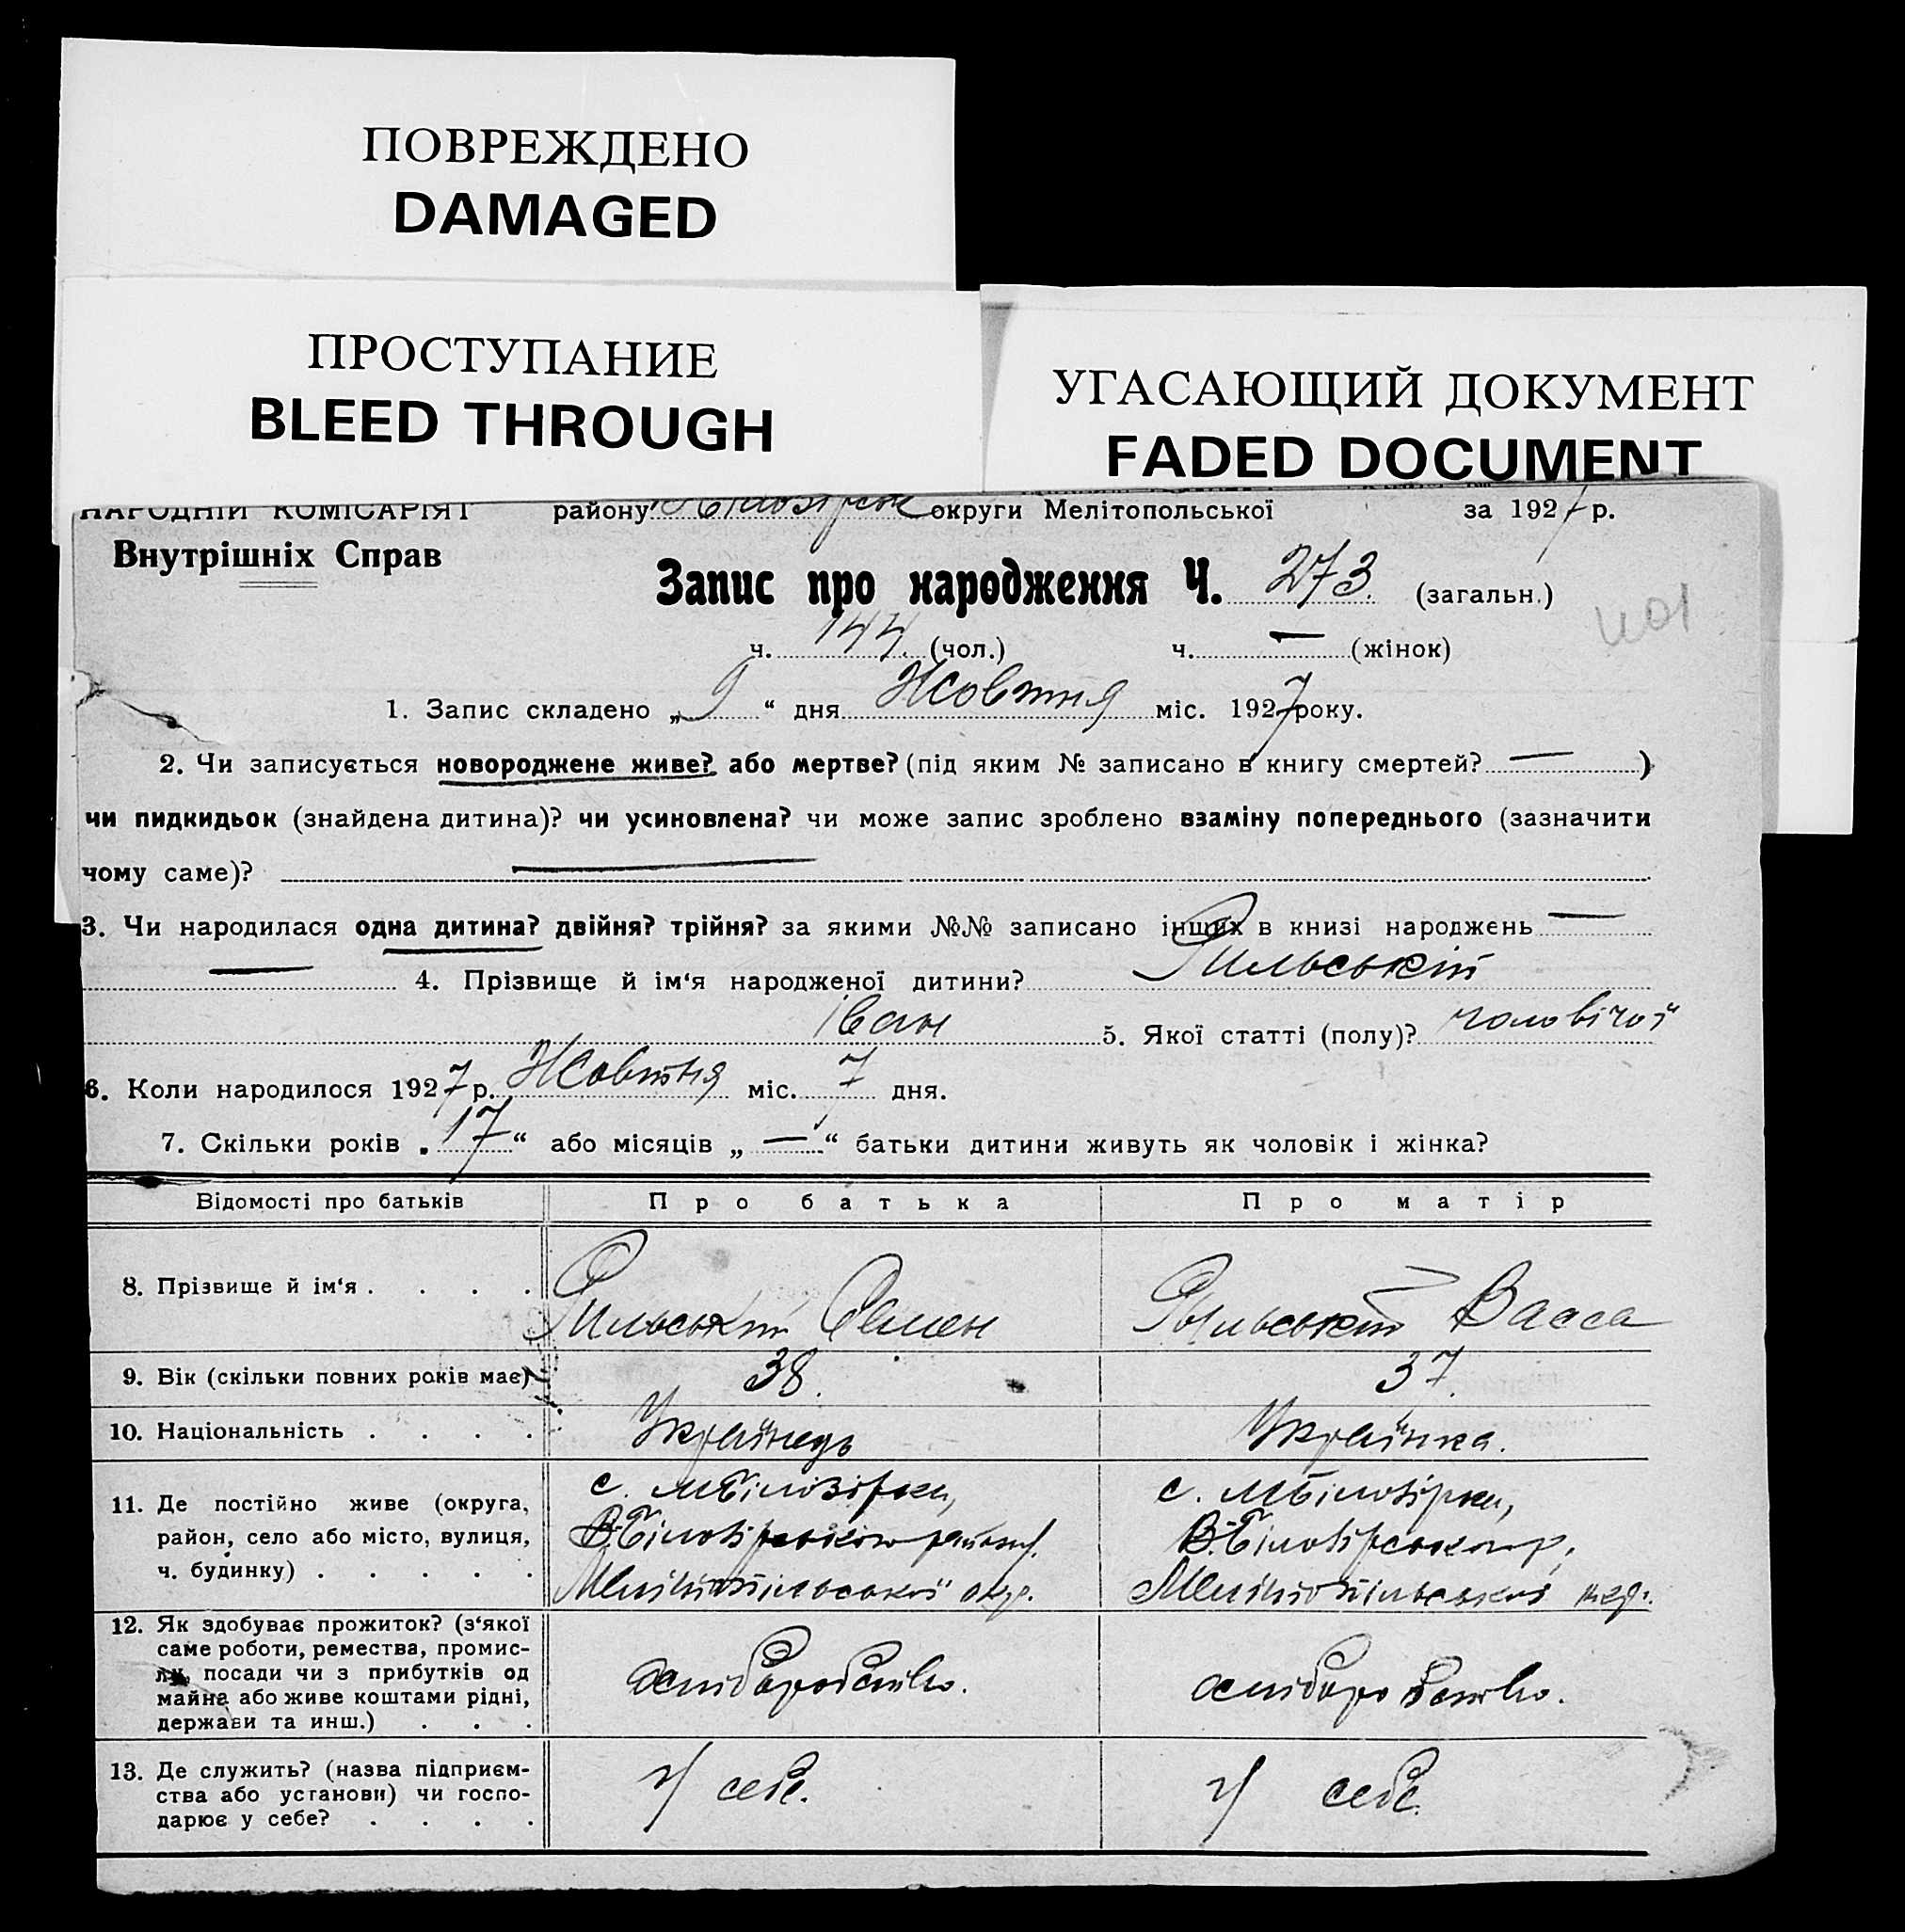 ПОВРЕЖДЕНО
DAMAGED
ПРОСТУПАНИЕ
BLEED THROUGH
УГАСАЮЩИЙ ДОКУМЕНТ
FADED DOCUMENT
НАРОДНІЙ КОМІСАРІЯТ району округи Мелітопольської за 1927 р.
Внутрішніх Справ
Запис про народження Ч. 273. (загальн.)
ч. 144. (чол.) ч. — (жінок)
1. Запис складено „9“ дня Жовтня міс. 1927 року.
2. Чи записується новороджене живе? або мертве? (під яким № записано в книгу смертей? — )
чи пидкидьок (знайдена дитина)? чи усиновлена? чи може запис зроблено взаміну попереднього (зазначити
чому саме)? —
3. Чи народилася одна дитина? двійня? трійня? за якими №№ записано інших в книзі народжень —
— 4. Прізвище й ім‘я народженої дитини? Рильський
Іван 5. Якої статті (полу)? чоловічої
6. Коли народилося 1927 р. Жовтня міс. 7 дня.
7. Скільки років „17“ або місяців „—“ батьки дитини живуть як чоловік і жінка?
Відомості про батьків Про батька Про матір
8. Прізвище й ім‘я . . . . Рильський Семен Рыльський Васса
9. Вік (скільки повних років має) 38. 37.
10. Національність . . . . Українець Українка.
11. Де постійно живе (округа, с. МБілозірки, с. МБілозірки,
район, село або місто, вулиця, В-Білозірського району. В-Білозірського р,
ч. будинку) . . . . . Мелітопільської окр. Мелітопільської окр.
12. Як здобуває прожиток? (з‘якої
саме роботи, ремества, промис-
лу, посади чи з прибутків од хліборобство. хліборобство.
майна або живе коштами рідні,
держави та инш.) . . .
13. Де служить? (назва підприєм- у себе. у себе.
ства або установи) чи госпо-
дарює у себе? . . . .